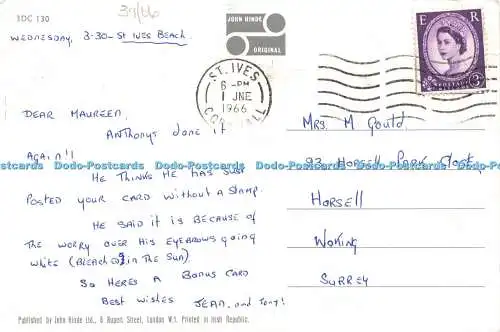 3DC 130
39/66
WEDNESDAY, 3-30-ST IVES BEACH
JOHN HINDE
ORIGINAL
ST. IVES
6-PM
1 JNE
1966
CORNWALL
E R
POSTAGE
3D
DEAR MAUREEN,
ANTHONYS DONE IT
AGAIN!!
HE THINKS HE HAS JUST
POSTED YOUR CARD WITHOUT A STAMP.
HE SAID IT IS BECAUSE OF
THE WORRY OVER HIS EYEBROWS GOING
WHITE (BLEACHING IN THE SUN)
SO HERES A BONUS CARD
BEST WISHES JEAN, and Tony!
MRS. M GOULD.
93 HORSELL PARK CLOSE,
HORSELL
WOKING
SURREY
Dodo-Postcards Dodo-Postcards Dodo-Postcards Dodo-Postcards Dodo-Postcards
Published by John Hinde Ltd., 8 Rupert Street, London W.1. Printed in Irish Republic.